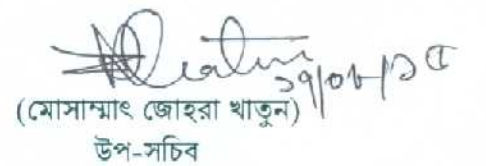 ২৭/০৮/১৫
(মোসাম্মাৎ জোহরা খাতুন)
উপ-সচিব